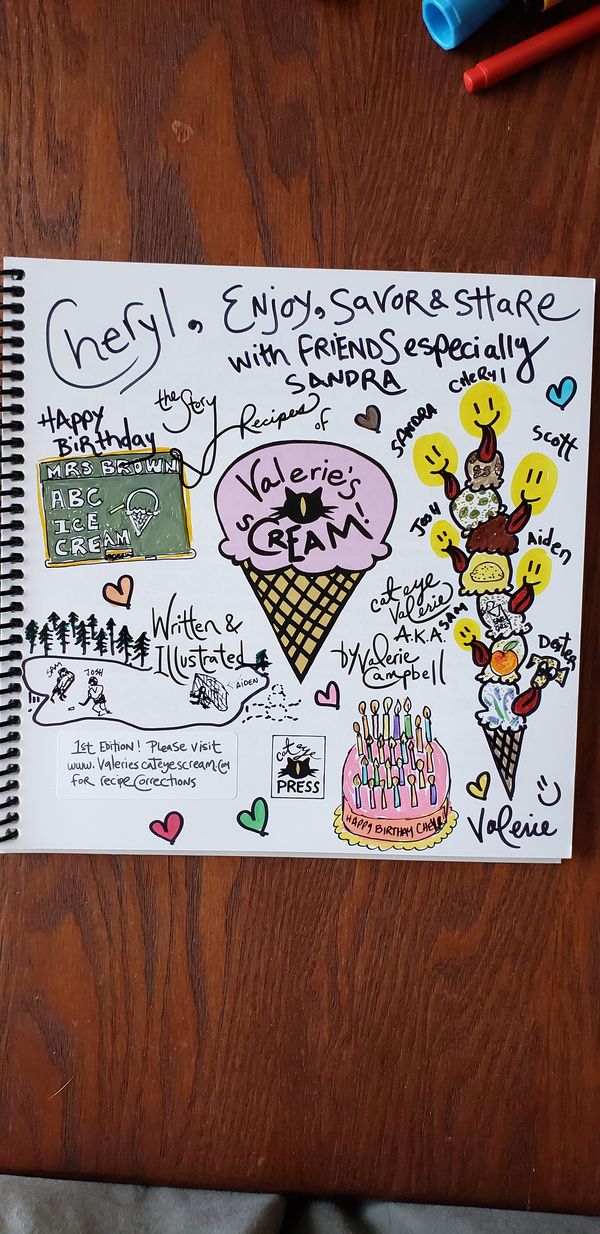 Cheryl, Enjoy, Savor & Share
with FRIENDS especially
SANDRA
HAPPY
BiRthday
the Story
Recipes of
MRS BROWN
ABC
ICE
CREAM
Valerie's
SCREAM!
CHERYl
SANDRA
Scott
Josh
Aiden
SAM
Dexter
cat eye
Valerie
A.K.A.
Written &
Illustrated
by Valerie
Campbell
SAM
JOSH
AIDEN
1st Edition! Please visit
www.Valeriescateyescream.com
for recipe corrections
cat eye
PRESS
HAPPY BIRTHDAY CHERYL!
Valerie